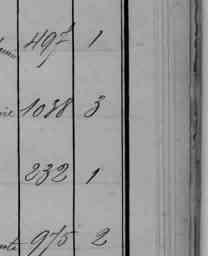 497 1
1038 3
232 1
975 2